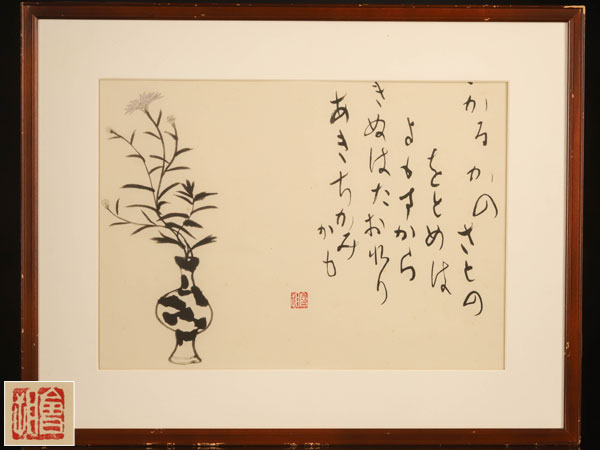 いかるかのさとの
をとめは
よもすから
きぬはたおれり
あきちかみ
かも